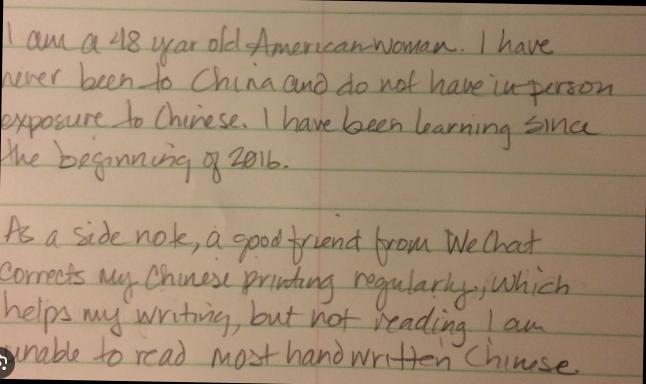 I am a 48 year old American woman. I have
never been to China and do not have in-person
exposure to Chinese. I have been learning since
the beginning of 2016.
As a side note, a good friend from WeChat
corrects my Chinese printing regularly, which
helps my writing, but not reading. I am
unable to read most handwritten Chinese